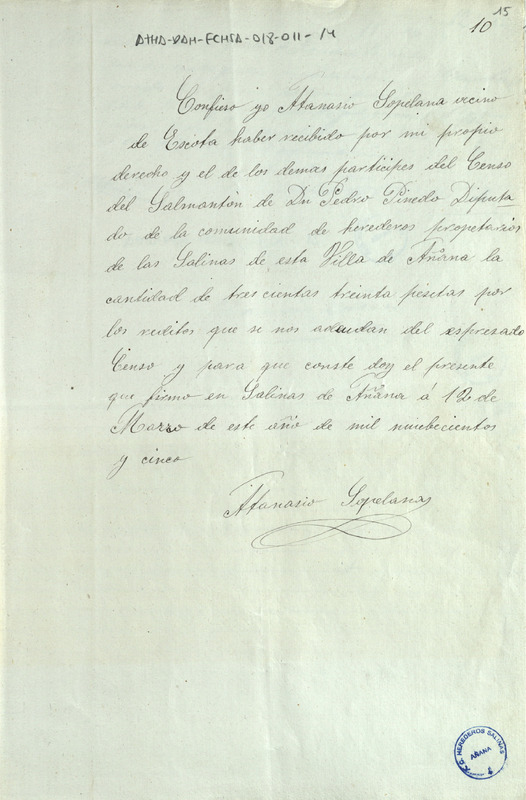 15
ATHA-DAH-FCHSA-018-011-14
10
Confieso yo Atanasio Sopelana vecino
de Escota haber recibido por mi propio
derecho y el de los demas participes del Censo
del Salmantón de Dn Pedro Pinedo Diputa
do de la comunidad de herederos propetarios
de las Salinas de esta Villa de Añana la
cantidad de trescientas treinta pesetas por
los reditos que se nos adeudan del espresado
Censo y para que conste doy el presente
que firmo en Salinas de Añana á 12 de
Marzo de este año de mil nuebecientos
y cinco
Atanasio Sopelana
HEREDEROS SALINAS
AÑANA